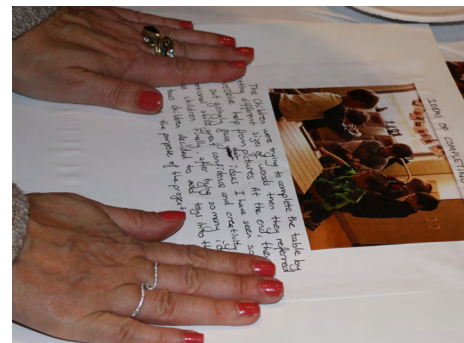 IDEAS OF COMPLETING
The children were trying to complete the table by
different size of woods then they referred
help from pictures. At the end, the
but gave ideas I have seen so
great confidence and creativity
children. Finally, after trying so many
two children decided to add toys into th
the purpose of the project